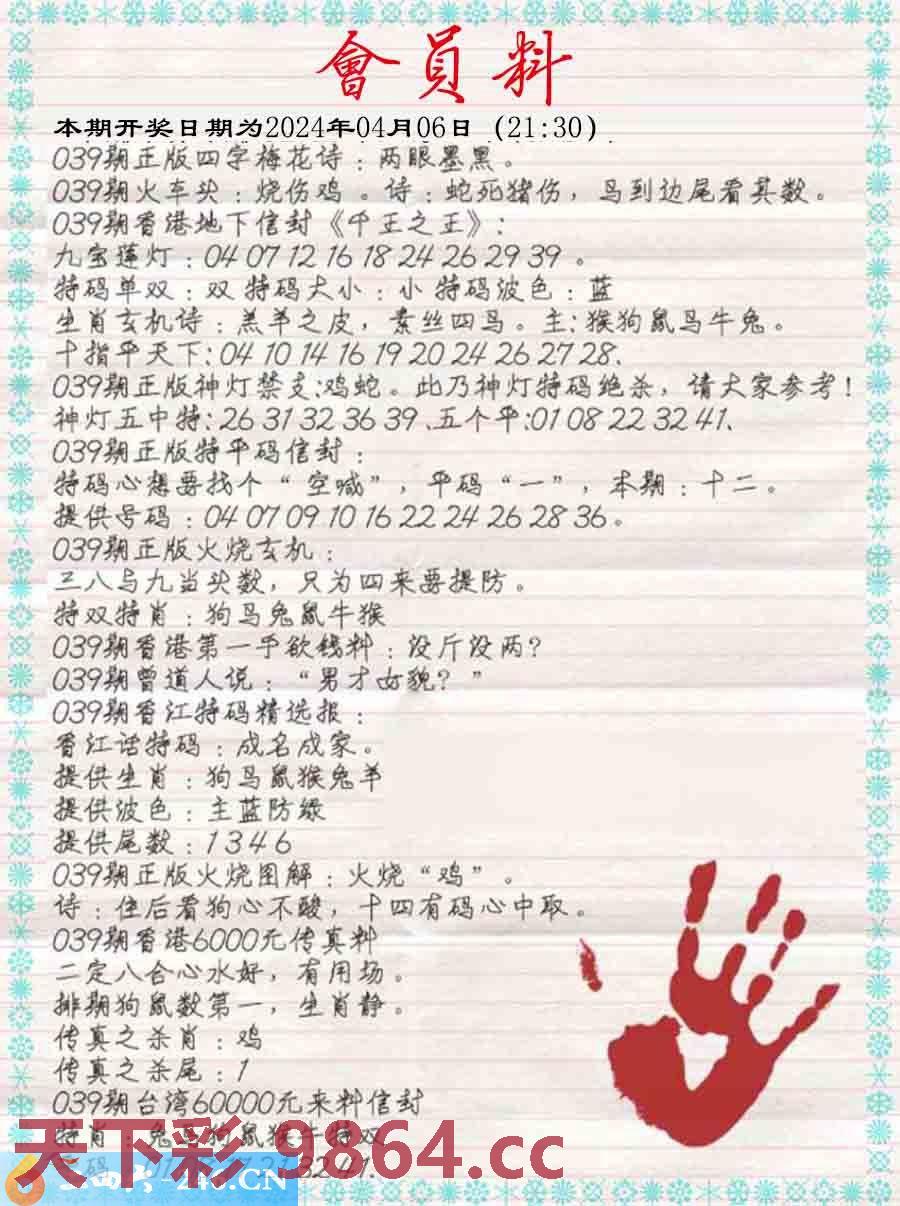 會員料
本期开奖日期为2024年04月06日（21:30）
039期正版四字梅花诗：两眼墨黑。
039期火车头：烧伤鸡。诗：蛇死猪伤，鸟到边尾看其数。
039期香港地下信封《千王之王》：
九宝莲灯：04 07 12 16 18 24 26 29 39 。
特码单双：双 特码大小：小 特码波色：蓝
生肖玄机诗：羔羊之皮，素丝四马。主：猴狗鼠马牛兔。
十指平天下：04 10 14 16 19 20 24 26 27 28.
039期正版神灯禁支:鸡蛇。此乃神灯特码绝杀，请大家参考！
神灯五中特：26 31 32 36 39 .五个平:01 08 22 32 41.
039期正版特平码信封：
特码心想要找个“空喊”，平码“一”，本期：十二。
提供号码：04 07 09 10 16 22 24 26 28 36。
039期正版火烧玄机：
三八与九当头数，只为四来要提防。
特双特肖：狗马兔鼠牛猴
039期香港第一手欲钱料：没斤没两?
039期曾道人说：“男才女貌？”
039期香江特码精选报：
香江话特码：成名成家。
提供生肖：狗马鼠猴兔羊
提供波色：主蓝防绿
提供尾数：1 3 4 6
039期正版火烧图解：火烧“鸡”。
诗：住后看狗心不酸，十四有码心中取。
039期香港6000元传真料
二定八合心水好，有用场。
排期狗鼠数第一，生肖静。
传真之杀肖：鸡
传真之杀尾：1
039期台湾60000元来料信封
特肖：兔马狗鼠猴牛特双
32 41.
天下彩 9864.cc
246.CN